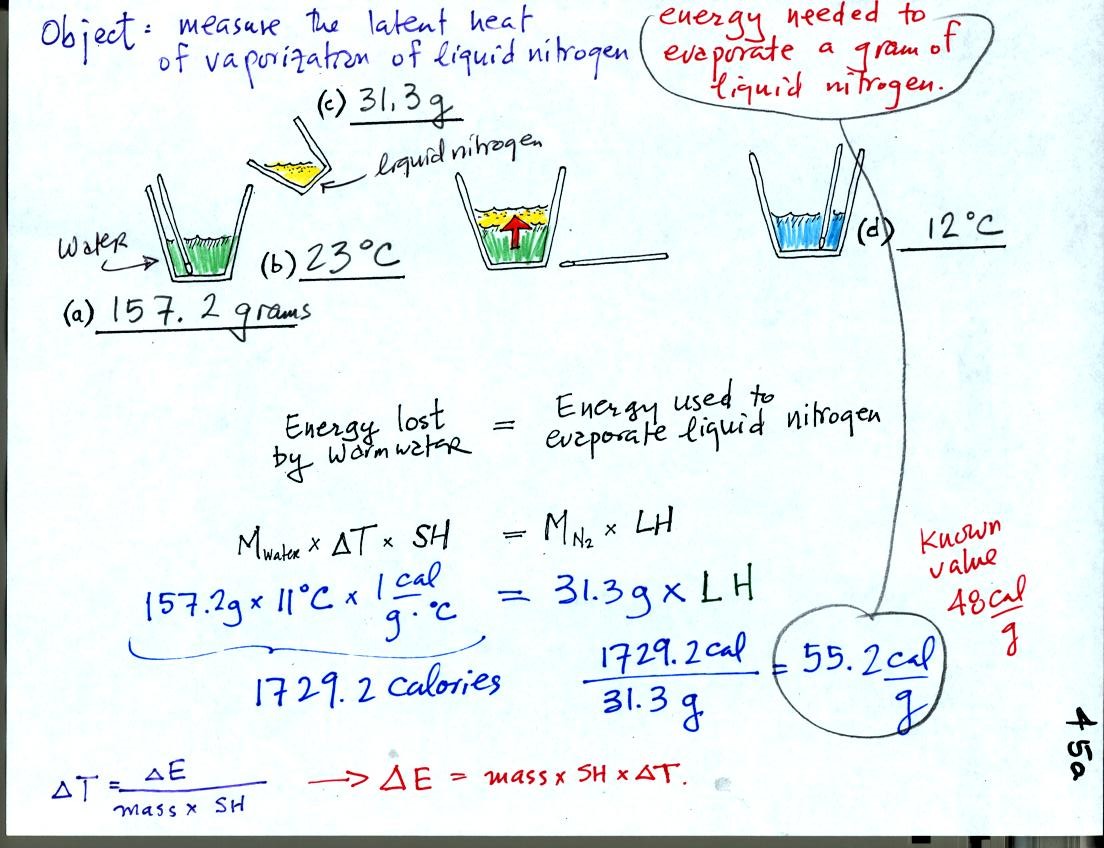 Object: measure the latent heat
of vaporization of liquid nitrogen
energy needed to
evaporate a gram of
liquid nitrogen.
(c) 31.3 g
liquid nitrogen
Water
(b) 23°C
(d) 12°C
(a) 157.2 grams
Energy lost
by warm water
=
Energy used to
evaporate liquid nitrogen
Mwater × ΔT × SH = MN2 × LH
157.2g × 11°C × 1 cal/g·°C = 31.3 g × LH
Known
value
48 cal/g
1729.2 calories
1729.2 cal/31.3 g = 55.2 cal/g
45a
ΔT = ΔE/mass × SH → ΔE = mass × SH × ΔT.